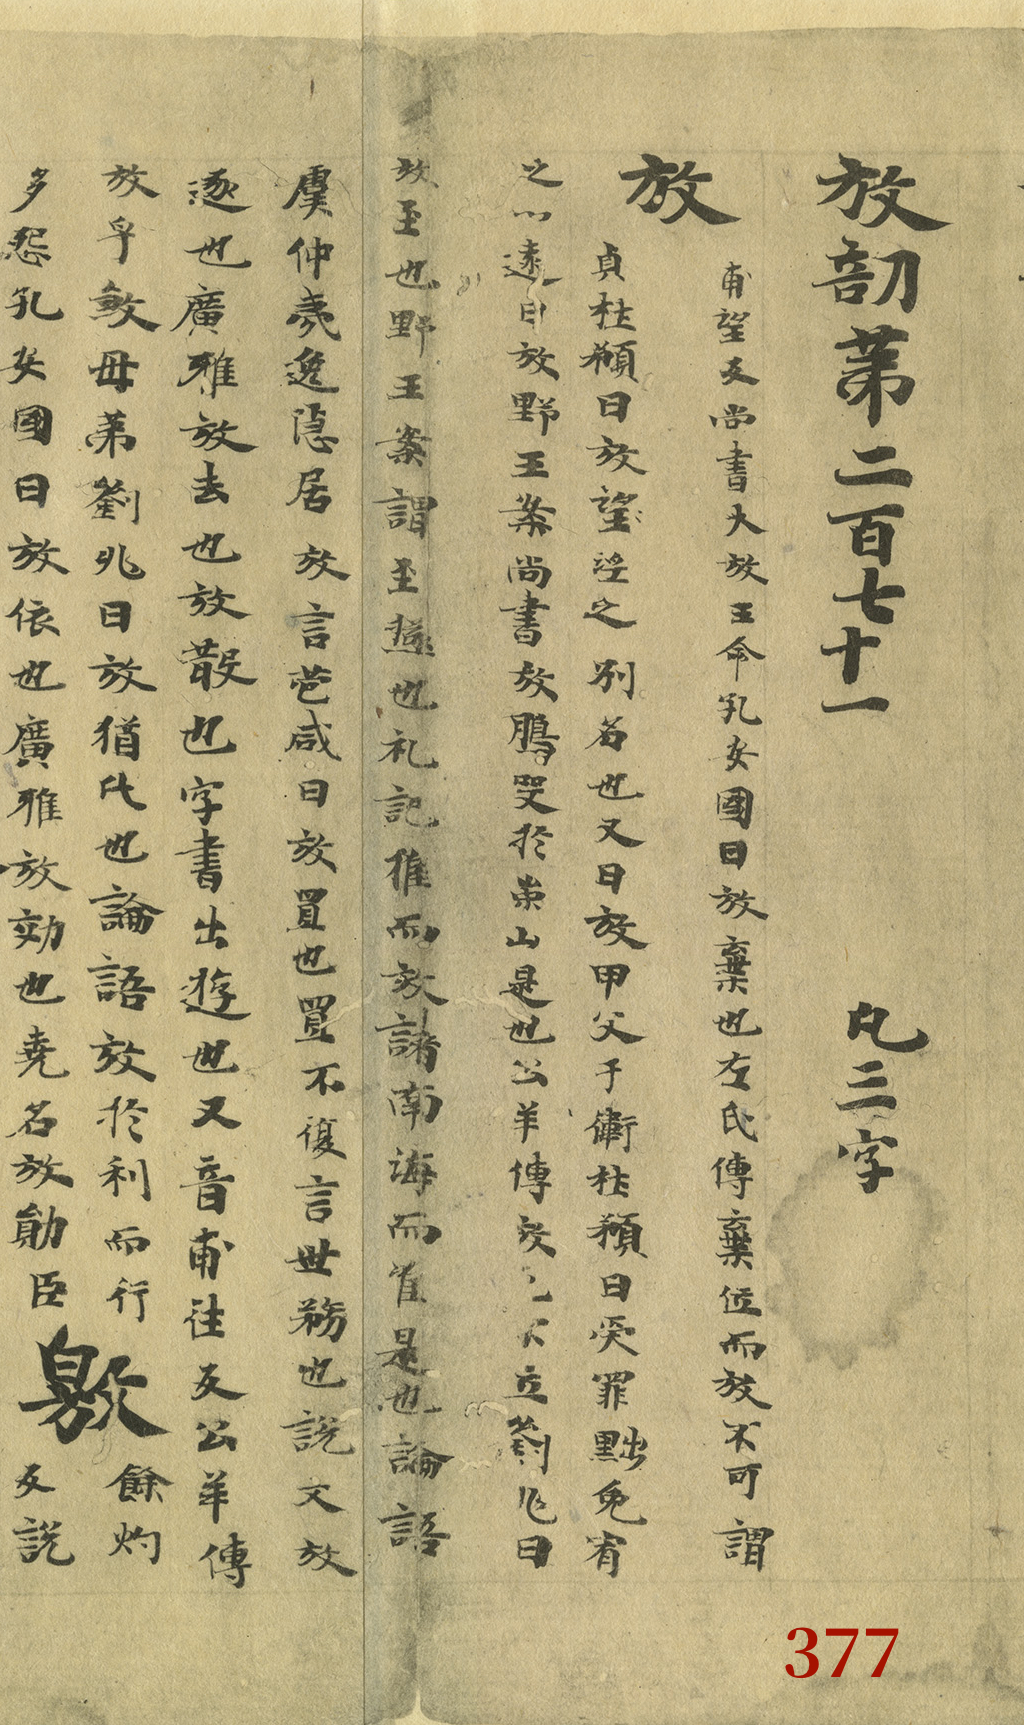 放部苐二百七十一 凡三字
放
甫望反尚書大放王命孔安國曰放棄也左氏傳棄位而放不可謂
貞杜預曰放望淫之別名也又曰放甲父于衛杜預曰受罪黜免宥
之以遠曰放野王案尚書放鵬㕦於崇山是也公羊傳放立劉兆曰
放至也野王案謂至極也礼記推而放諸南海而准是也論語
虞仲夷逸隱居放言苞咸曰放置也置不復言世務也說文放
逐也廣雅放去也放散也字書出遊也又音甫往反公羊傳
放乎敘母苐劉兆曰放猶比也論語放於利而行
多怨孔安國曰放依也廣雅放効也堯名放勛臣
敫
餘灼
反說
377